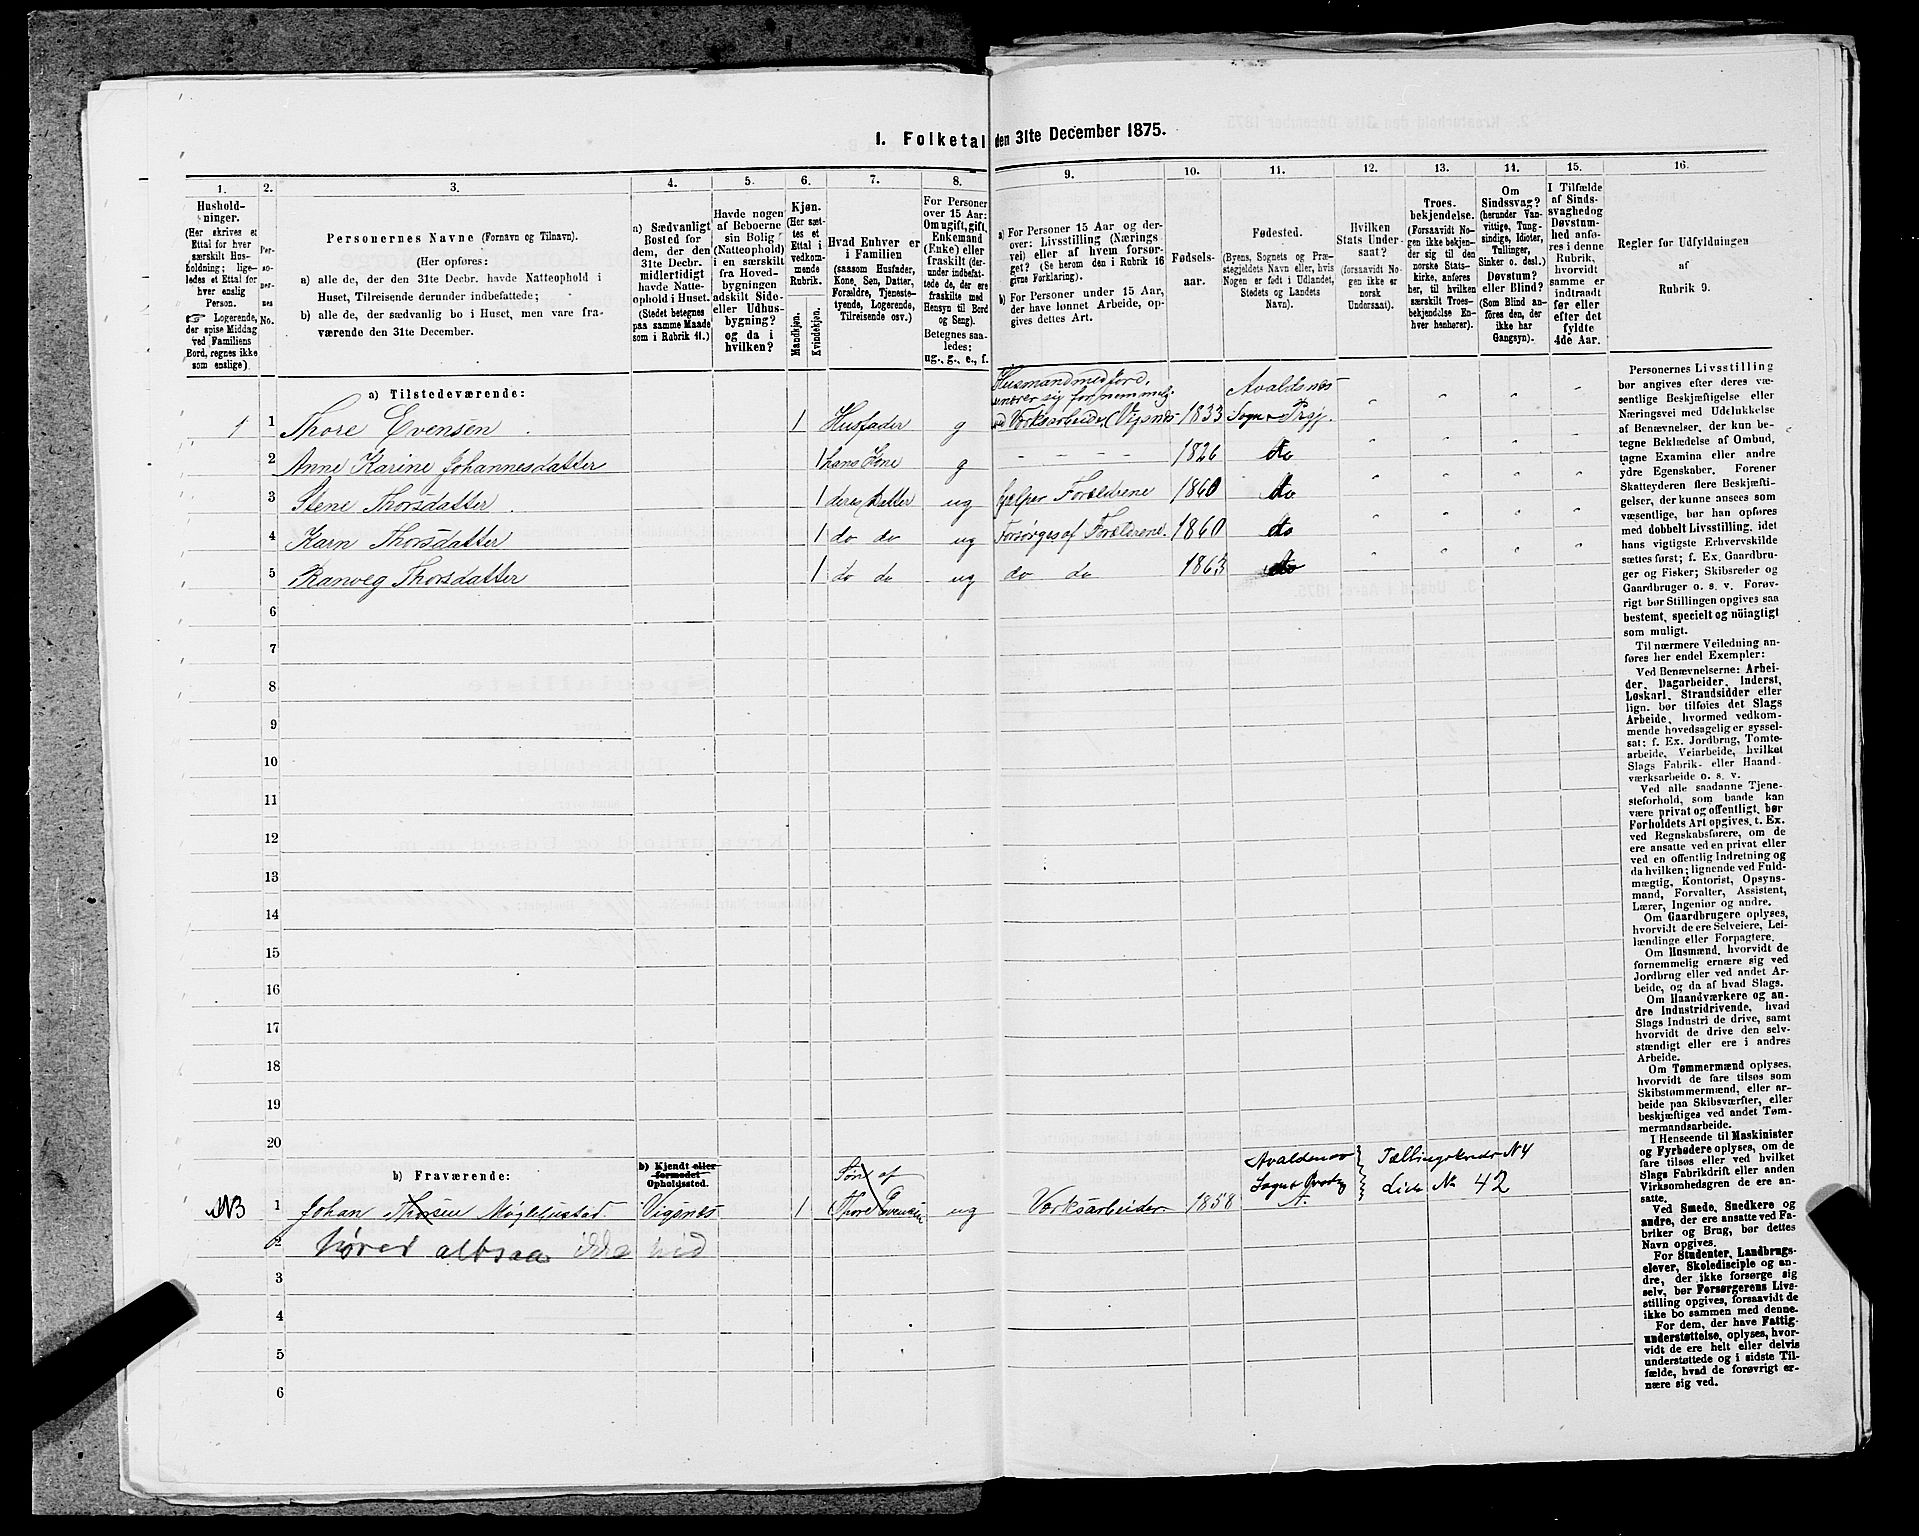 1. Folketal den 31te December 1875.
1. 2. 3. 4. 5. 6. 7. 8. 9. 10. 11. 12. 13. 14. 15. 16.
Hushold-
ninger.
(Her skrives et
Ettal for hver
særskilt Hus-
holdning; lige-
ledes et Ettal for
hver enslig
Person.
☞ Logerende,
der spise Middag
ved Familiens
Bord, regnes ikke
som enslige).
Per-
so-
ner-
nes
No.
Personernes Navne (Fornavn og Tilnavn).
(Her opføres:
a) alle de, der den 31te Decbr. havde Natteophold i
Huset, Tilreisende derunder indbefattede;
b) alle de, der sædvanlig bo i Huset, men vare fra-
værende den 31te December.
a) Sædvanligt
Bosted for
dem, der den
31te Decbr.
midlertidigt
havde Natte-
ophold i Huset.
(Stedet betegnes
paa samme Maade
som i Rubrik 11.)
Havde nogen
af Beboerne
sin Bolig
(Natteophold)
i en særskilt
fra Hoved-
bygningen
adskilt Side-
eller Udhus-
bygning?
og da i
hvilken?
Kjøn.
(Her sæt-
tes et
Ettal i
vedkom-
mende
Rubrik.
Mandkjøn.
Kvindekjøn.
Hvad Enhver er
i Familien
(saasom Husfader,
Kone, Søn, Datter,
Forældre, Tjeneste-
tyende, Logerende,
Tilreisende osv.)
For Personer
over 15 Aar:
Om ugift, gift,
Enkemand
(Enke) eller
fraskilt (der-
under indbefat-
tede de, der ere
fraskilte med
Hensyn til Bord
og Seng).
Betegnes saa-
ledes:
ug., g., e., f.
a) For Personer 15 Aar og der-
over: Livsstilling (Nærings
vei) eller af hvem forsør-
get? (Se herom den i Rubrik 16
givne Forklaring.)
b) For Personer under 15 Aar,
der have lønnet Arbeide, op-
gives dettes Art.
Fødsels-
aar.
Fødested.
(Byens, Sognets og Præ-
stegjeldets Navn eller, hvis
Nogen er født i Udlandet,
Stedets og Landets
Navn).
Hvilken
Stats Under-
saat?
(forsaavidt No-
gen ikke er
norsk
Undersaat).
Troes-
bekjendelse.
(Forsaavidt No-
gen ikke bekjen-
der sig til den
norske Stats-
kirke, anføres
her, til hvilken
særskilt Troes-
bekjendelse En-
hver henhører).
Om
Sindssvag?
(herunder Van-
vittige, Tung-
sindige, Idioter,
Tullinger,
Sinker o. desl.).
Døvstum?
eller Blind?
(Som Blind an-
føres den, der
ikke har
Gangsyn).
I Tilfælde
af Sinds-
svaghedog
Døvstum-
hed anfø-
res i denne
Rubrik,
hvorvidt
samme er
indtraadt
før eller
efter det
fyldte
4de Aar.
Regler for Udfyldningen
af
Rubrik 9.
a) Tilstedeværende:
Avaldsnes
1 1 Thore Evensen 1 Husfader g 1833 Sogn & Præj.
2 Anne Karine Johannesdatter 1 hans Kone g - - - - 1826 do
3 Stene Thorsdatter 1 deres Datter ug hjelper Forældrene 1860 do
4 Karn Thorsdatter 1 do do ug Forsørges af Forældrene 1860 do
5 Ranveg Thorsdatter 1 do do ug do do 1863 do
6
7
8
9
10
11
12
13
14
15
16
17
18
19
20
b) Fraværende:
b) Kjendt eller
formodet
Opholdssted.
Søn af
Avaldsnes Tællingskreds N 4
NB 1 Johan Thorsen Vigsnes 1 Thore Evensen ug Værksarbeider 1858
Liste No 42
2 hører altsaa ikke hid
3
4
5
6
Personernes Livsstilling
bør angives efter deres væ-
sentlige Beskjæftigelse eller
Næringsvei med Udelukkelse
af Benævnelser, der kun be-
tegne Beklædelse af Ombud,
tagne Examina eller andre
ydre Egenskaber. Forener
Skatteyderen flere Beskjæfti-
gelser, der kunne ansees som
væsentlige, bør han opføres
med dobbelt Livsstilling, idet
hans vigtigste Erhvervskilde
sættes først; f. Ex. Gaardbru-
ger og Fisker; Skibsreder og
Gaardbruger o. s. v. Forøv-
rigt bør Stillingen opgives saa
bestemt, specielt og nöiagtigt
som muligt.
Til nærmere Veiledning an-
føres her endel Exempler:
Ved Benævnelserne: Arbei-
der, Dagarbeider, Inderst,
Løskarl, Strandsidder eller
lign. bør tilføies det Slags
Arbeide, hvormed vedkom-
mende hovedsagelig er syssel-
sat; f. Ex. Jordbrug, Tomte-
arbeide, Veiarbeide, hvilket
Slags Fabrik- eller Haand-
værksarbeide o. s. v.
Ved alle saadanne Tjene-
steforhold, som baade kan
være privat og offentligt, bør
Forholdets Art opgives, t. Ex.
ved Regnskabsførere, om de
ere ansatte ved en privat eller
ved en offentlig Indretning og
da hvilken; lignende ved Fuld-
mægtig, Kontorist, Opsyns-
mand, Forvalter, Assistent,
Lærer, Ingeniør og andre.
Om Gaardbrugere oplyses,
hvorvidt de ere Selveiere, Lei-
lændinge eller Forpagtere.
Om Husmænd, hvorvidt de
fornemmelig ernære sig ved
Jordbrug eller ved andet Ar-
beide, og da af hvad Slags.
Om Haandværkere og an-
dre Industridrivende, hvad
Slags Industri de drive, samt
hvorvidt de drive den selv-
stændigt eller ere i andres
Arbeide.
Om Tømmermænd oplyses,
hvorvidt de fare tilsøs som
Skibstømmermænd, eller ar-
beide paa Skibsværfter, eller
beskjæftiges ved andet Tøm-
mermandsarbeide.
I Henseende til Maskinister
og Fyrbødere oplyses, om de
fare tilsøs eller ved hvilket
Slags Fabrikdrift eller anden
Virksomhedsgren de ere an-
satte.
Ved Smede, Snedkere og
andre, der ere ansatte ved Fa-
briker og Brug, bør dettes
Navn opgives.
For Studenter, Landbrugs-
elever, Skoledisciple og an-
dre, der ikke forsørge sig
selv, bør Forsørgerens Livs-
stilling opgives, forsaavidt de
ikke bo sammen med denne.
For dem, der have Fattig-
understøttelse, oplyses, hvor-
vidt de ere helt eller delvis
understøttede og i sidste Til-
fælde, hvad de forøvrigt er-
nære sig ved.